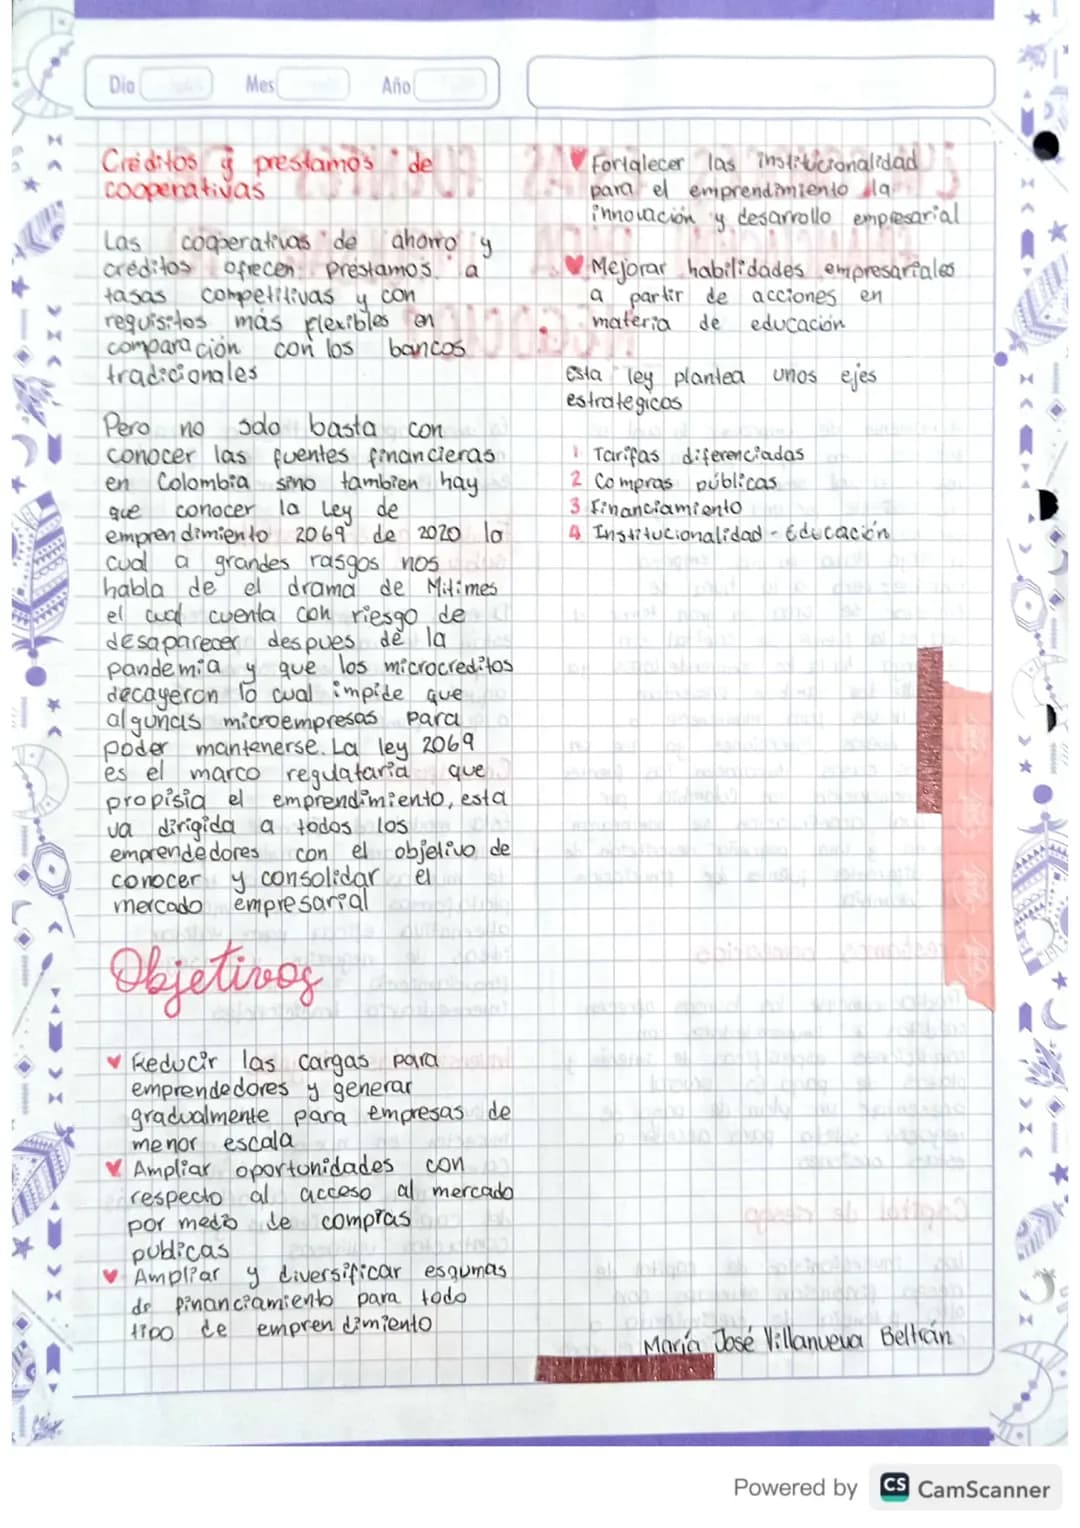 Dia
Mes
Año
Créditos y prestamos de
cooperativas
Las cooperativas de ahorro y
créditos ofrecen prestamos a
tasas competitivas y con
requisitos más flexibles en
comparación con los bancos
tradicionales
Pero no solo basta con
conocer las fuentes financieras
en Colombia sino tambien hay
que conocer la Ley de
emprendimiento 2069 de 2020 la
cual a grandes rasgos nos
habla de el drama de Mitimes
el cual cuenta con riesgo de
desaparecer despues de la
pandemia y que los microcreditos
decayeron lo cual impide que
algunas microempresas para
poder mantenerse. La ley 2069
es el marco regulataria que
propisia el emprendimiento, esta
va dirigida a todos los
emprendedores con el objetivo de
conocer y consolidar el
mercado empresarial
Objetivos
Reducir las cargas para
emprendedores y generar
gradualmente para empresas de
menor escala
Ampliar oportunidades con
respecto al acceso al mercado
por medio de compras
publicas
Ampliar y diversificar esqumas
de financiamiento para todo
tipo de emprendimiento
Fortalecer las institucionalidad
para el emprendimiento la
innovación y desarrollo empresarial
Mejorar habilidades empresariales
a partir de acciones en
materia de educación
Esta ley plantea unos ejes
estrategicos
1 Tarifas diferenciadas
2 Compras públicas
3 Financiamiento
4 Institucionalidad - Educación
María José Villanueva Beltrán
Powered by CS CamScanner